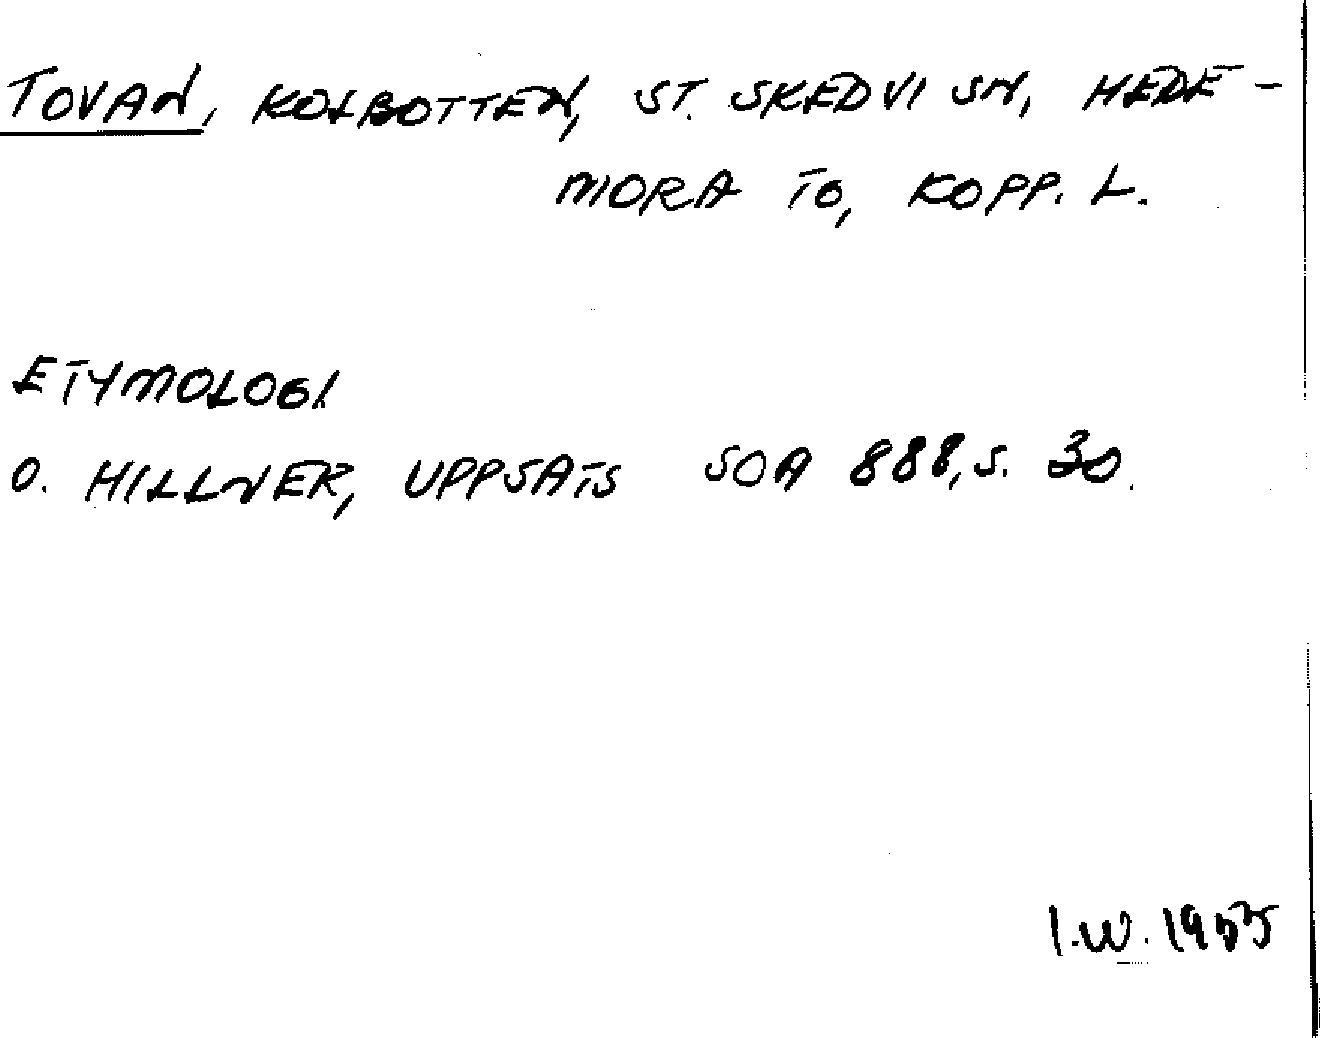 TOVAN, KOLBOTTEN, ST. SKEDVI SN, HEDE-
MORA TG, KOPP. L.
ETYMOLOGI
O. HILLNER, UPPSATS SOA 888, S. 30.
I.W. 1955